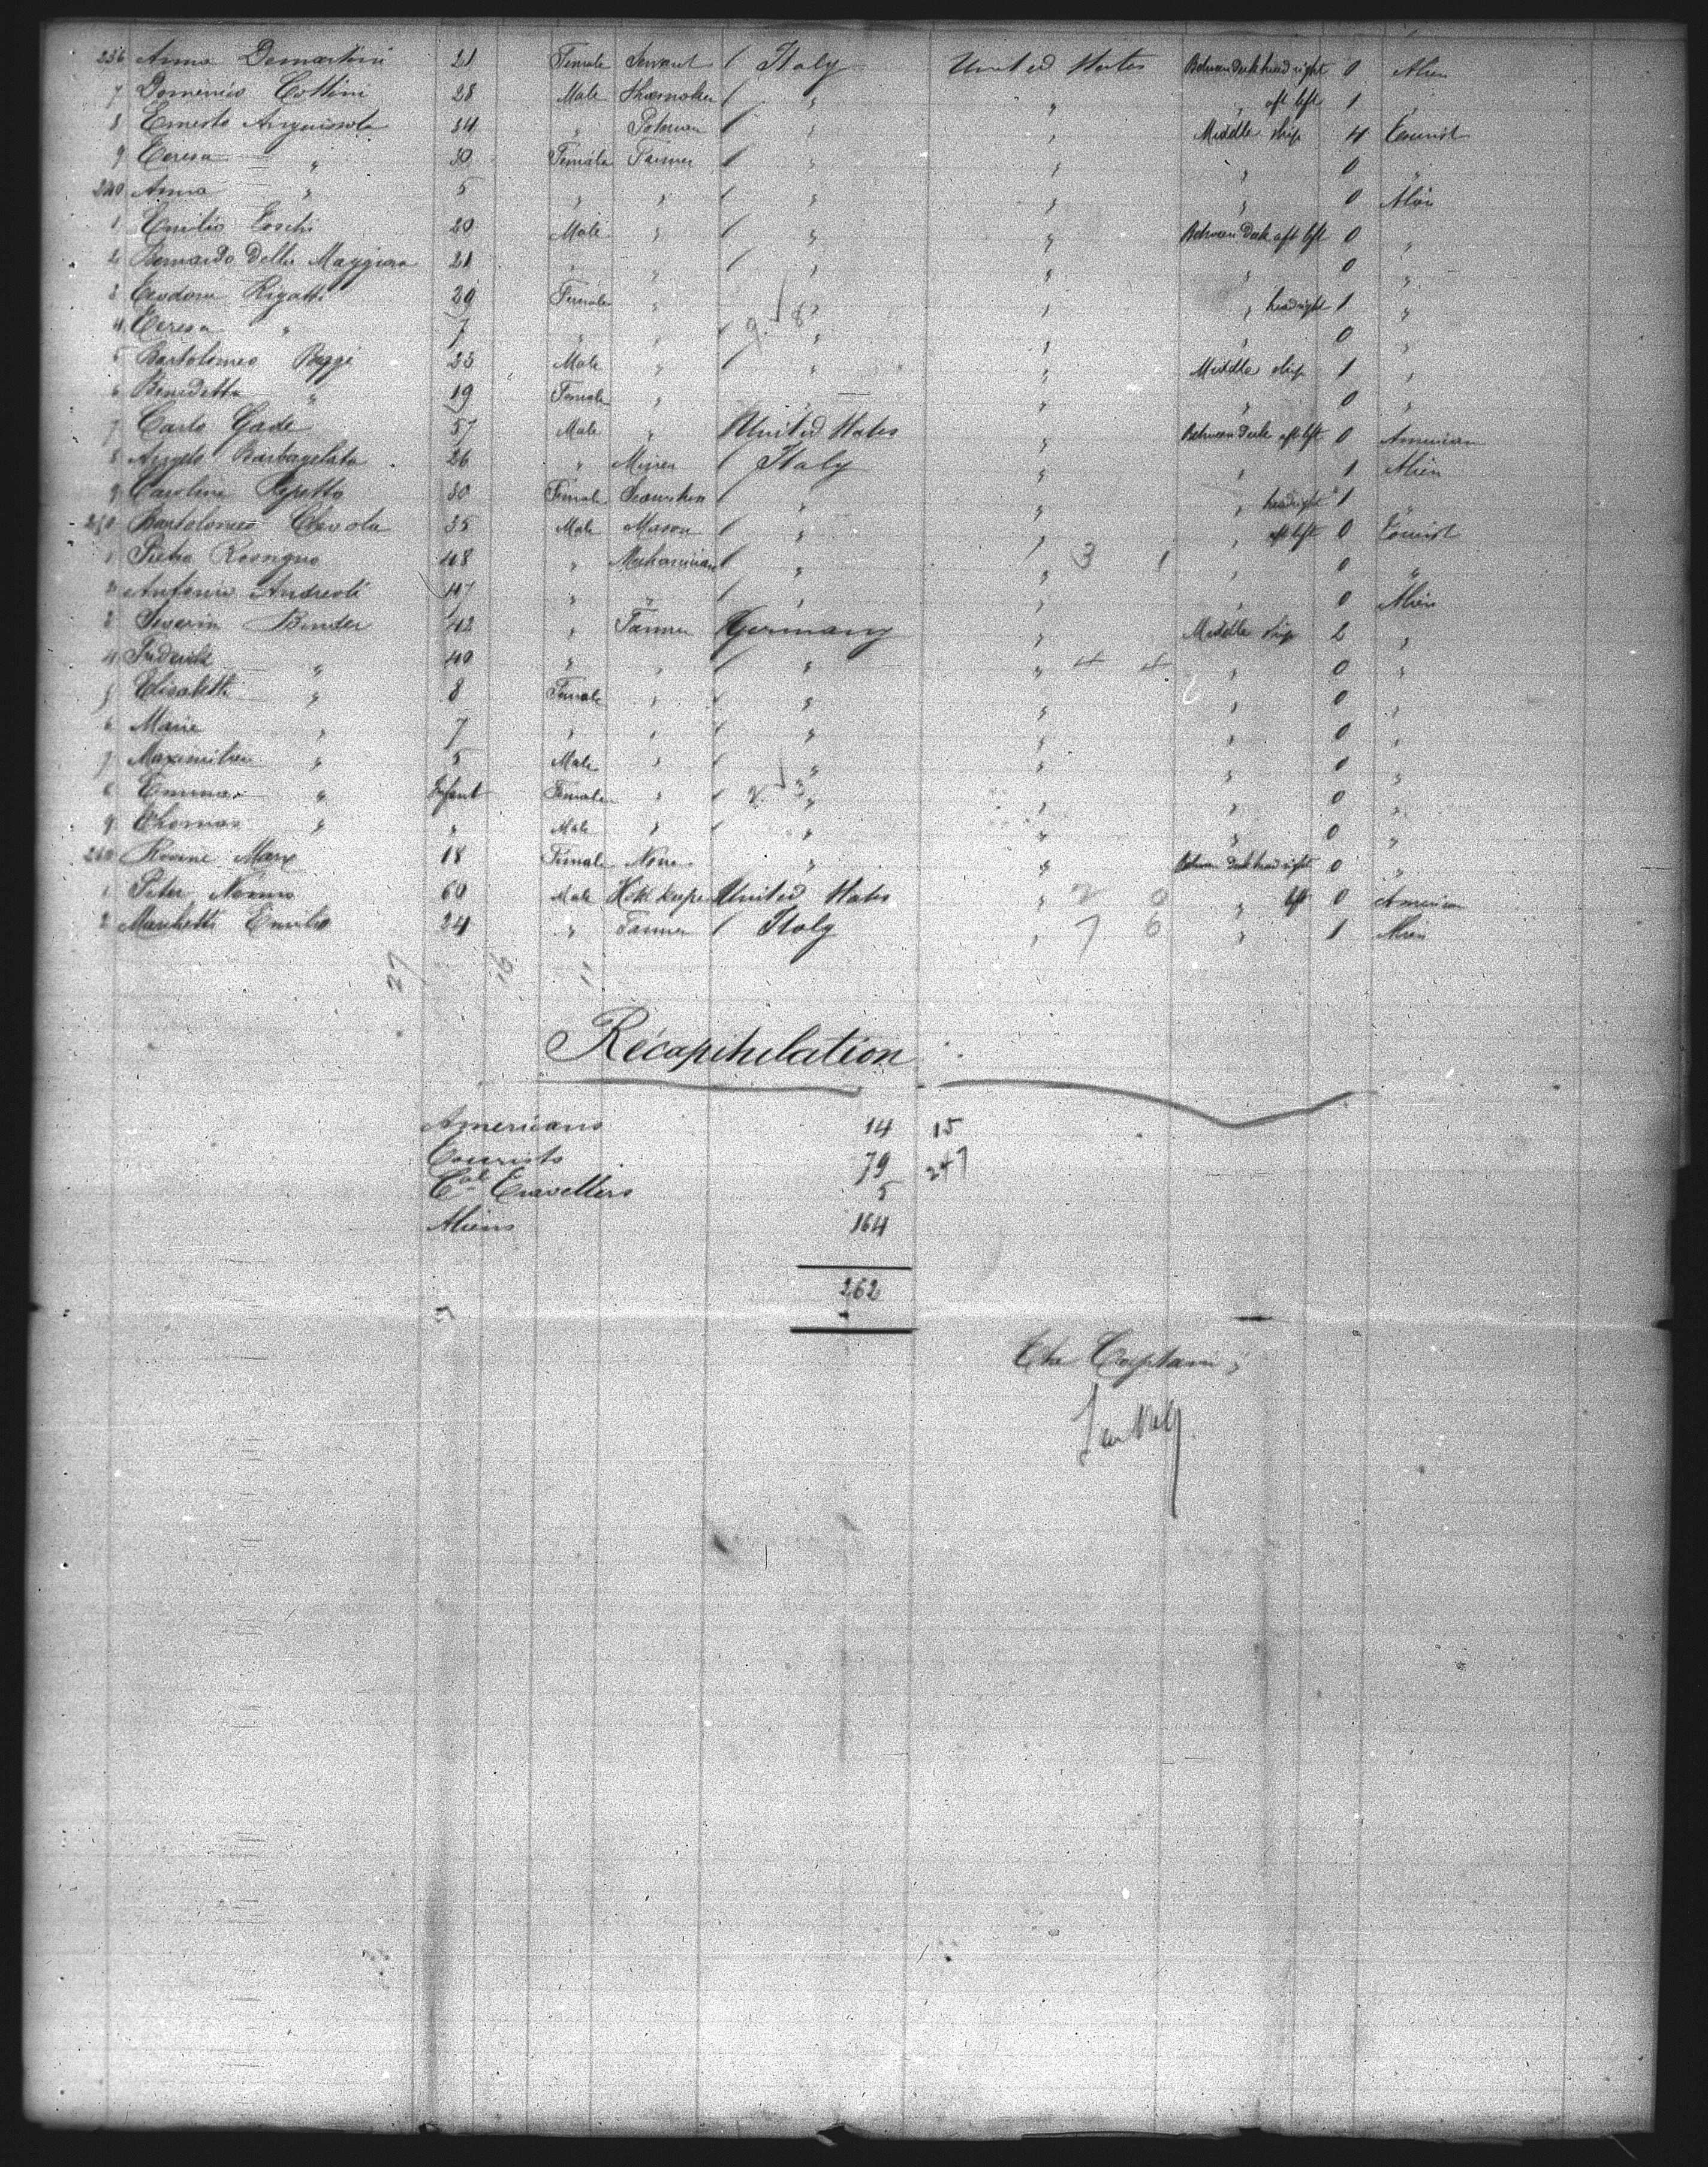 236 Anna Demartini 21 Female Servant / Italy United States Between deck head right 0 Alien
7 Domenico Cottini 28 Male Shoemaker / " " " aft left 1 "
8 Ernesto Anguissola 34 " / " " Middle ship 4 Tourist
9 Teresa " 30 Female Farmer / " " " 0 "
240 Anna " 5 " " / " " " 0 Alien
1 Emilio Toschi 20 Male " / " " Between Deck aft left 0 "
2 Bernardo Della Maggiora 21 " " / " " " 0 "
3 Teodora Rigatti 29 Female " " " " head right 1 "
4 Teresa " 7 " " / " " " 0 "
5 Bartolomeo Poggi 23 Male " / " " Middle ship 1 "
6 Benedetta " 19 Female " " " " 0 "
7 Carlo Gade 57 Male " / United States " Between Deck aft left 0 American
8 Angelo Barbagelata 26 " Miner / Italy " " 1 Alien
9 Carolina Repetto 30 Female / " " " head right 1 "
250 Bartolomeo 35 Male Mason / " " " aft left 0 Tourist
1 Pietro 48 " Mechanician / " " 3 1 " 0 "
2 Antonio Andreoli 47 " " / " " " 0 Alien
3 Severin Binder 42 " Farmer / Germany " Middle ship 2 "
4 Frederik " 40 " " / " " 4 4 " 0 "
5 Elisabeth " 8 Female " / " " " 0 "
6 Marie " 7 " " / " " " 0 "
7 Maximilien " 5 Male " / " " " 0 "
8 Emma " Infant Female " / 2 3 " " " 0 "
9 Thomas " " Male " / " " " 0 "
260 Rosine Marx 18 Female None " " Between deck head right 0 "
1 Peter Nonno 60 Male Hotl keeper United States " 2 0 " left 0 American
2 Marchetti Emilio 24 " Farmer / Italy " 7 6 " 1 Alien
27 16 11
Récapitulation
Americans 14 15
Tourists 79 247
Cal Travellers 5
Aliens 164
262
The Captain,